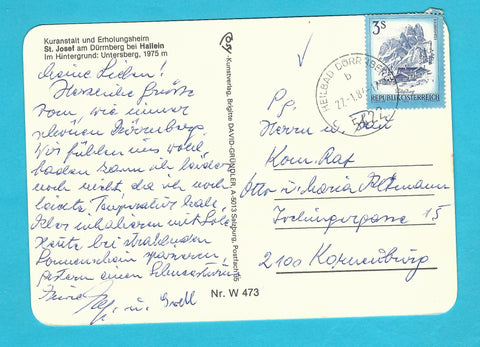 Kuranstalt und Erholungsheim
St. Josef am Dürrnberg bei Hallein
Im Hintergrund: Untersberg, 1975 m
Meine Lieben!
Herzliche Grüße
vom wie immer
schönen Dürrnberg.
Wir fühlen uns wohl
baden kann ich leider
noch nicht, da ich noch
leichte Temperatur habe.
Aber inhalieren mit Sole.
Heute bei strahlendem
Sonnenschein spazieren,
gestern einen Schneesturm
u.
Kunstverlag, Brigitte DAVID-GRÜNDLER, A-5013 Salzburg, Postfach 95
Nr. W 473
3S
REPUBLIK ÖSTERREICH
HEILBAD DÜRRNBERG
b
27.1.8
5422
Herrn u. Frau
Kom. Rat
Otto u. Maria
15
2100 Korneuburg